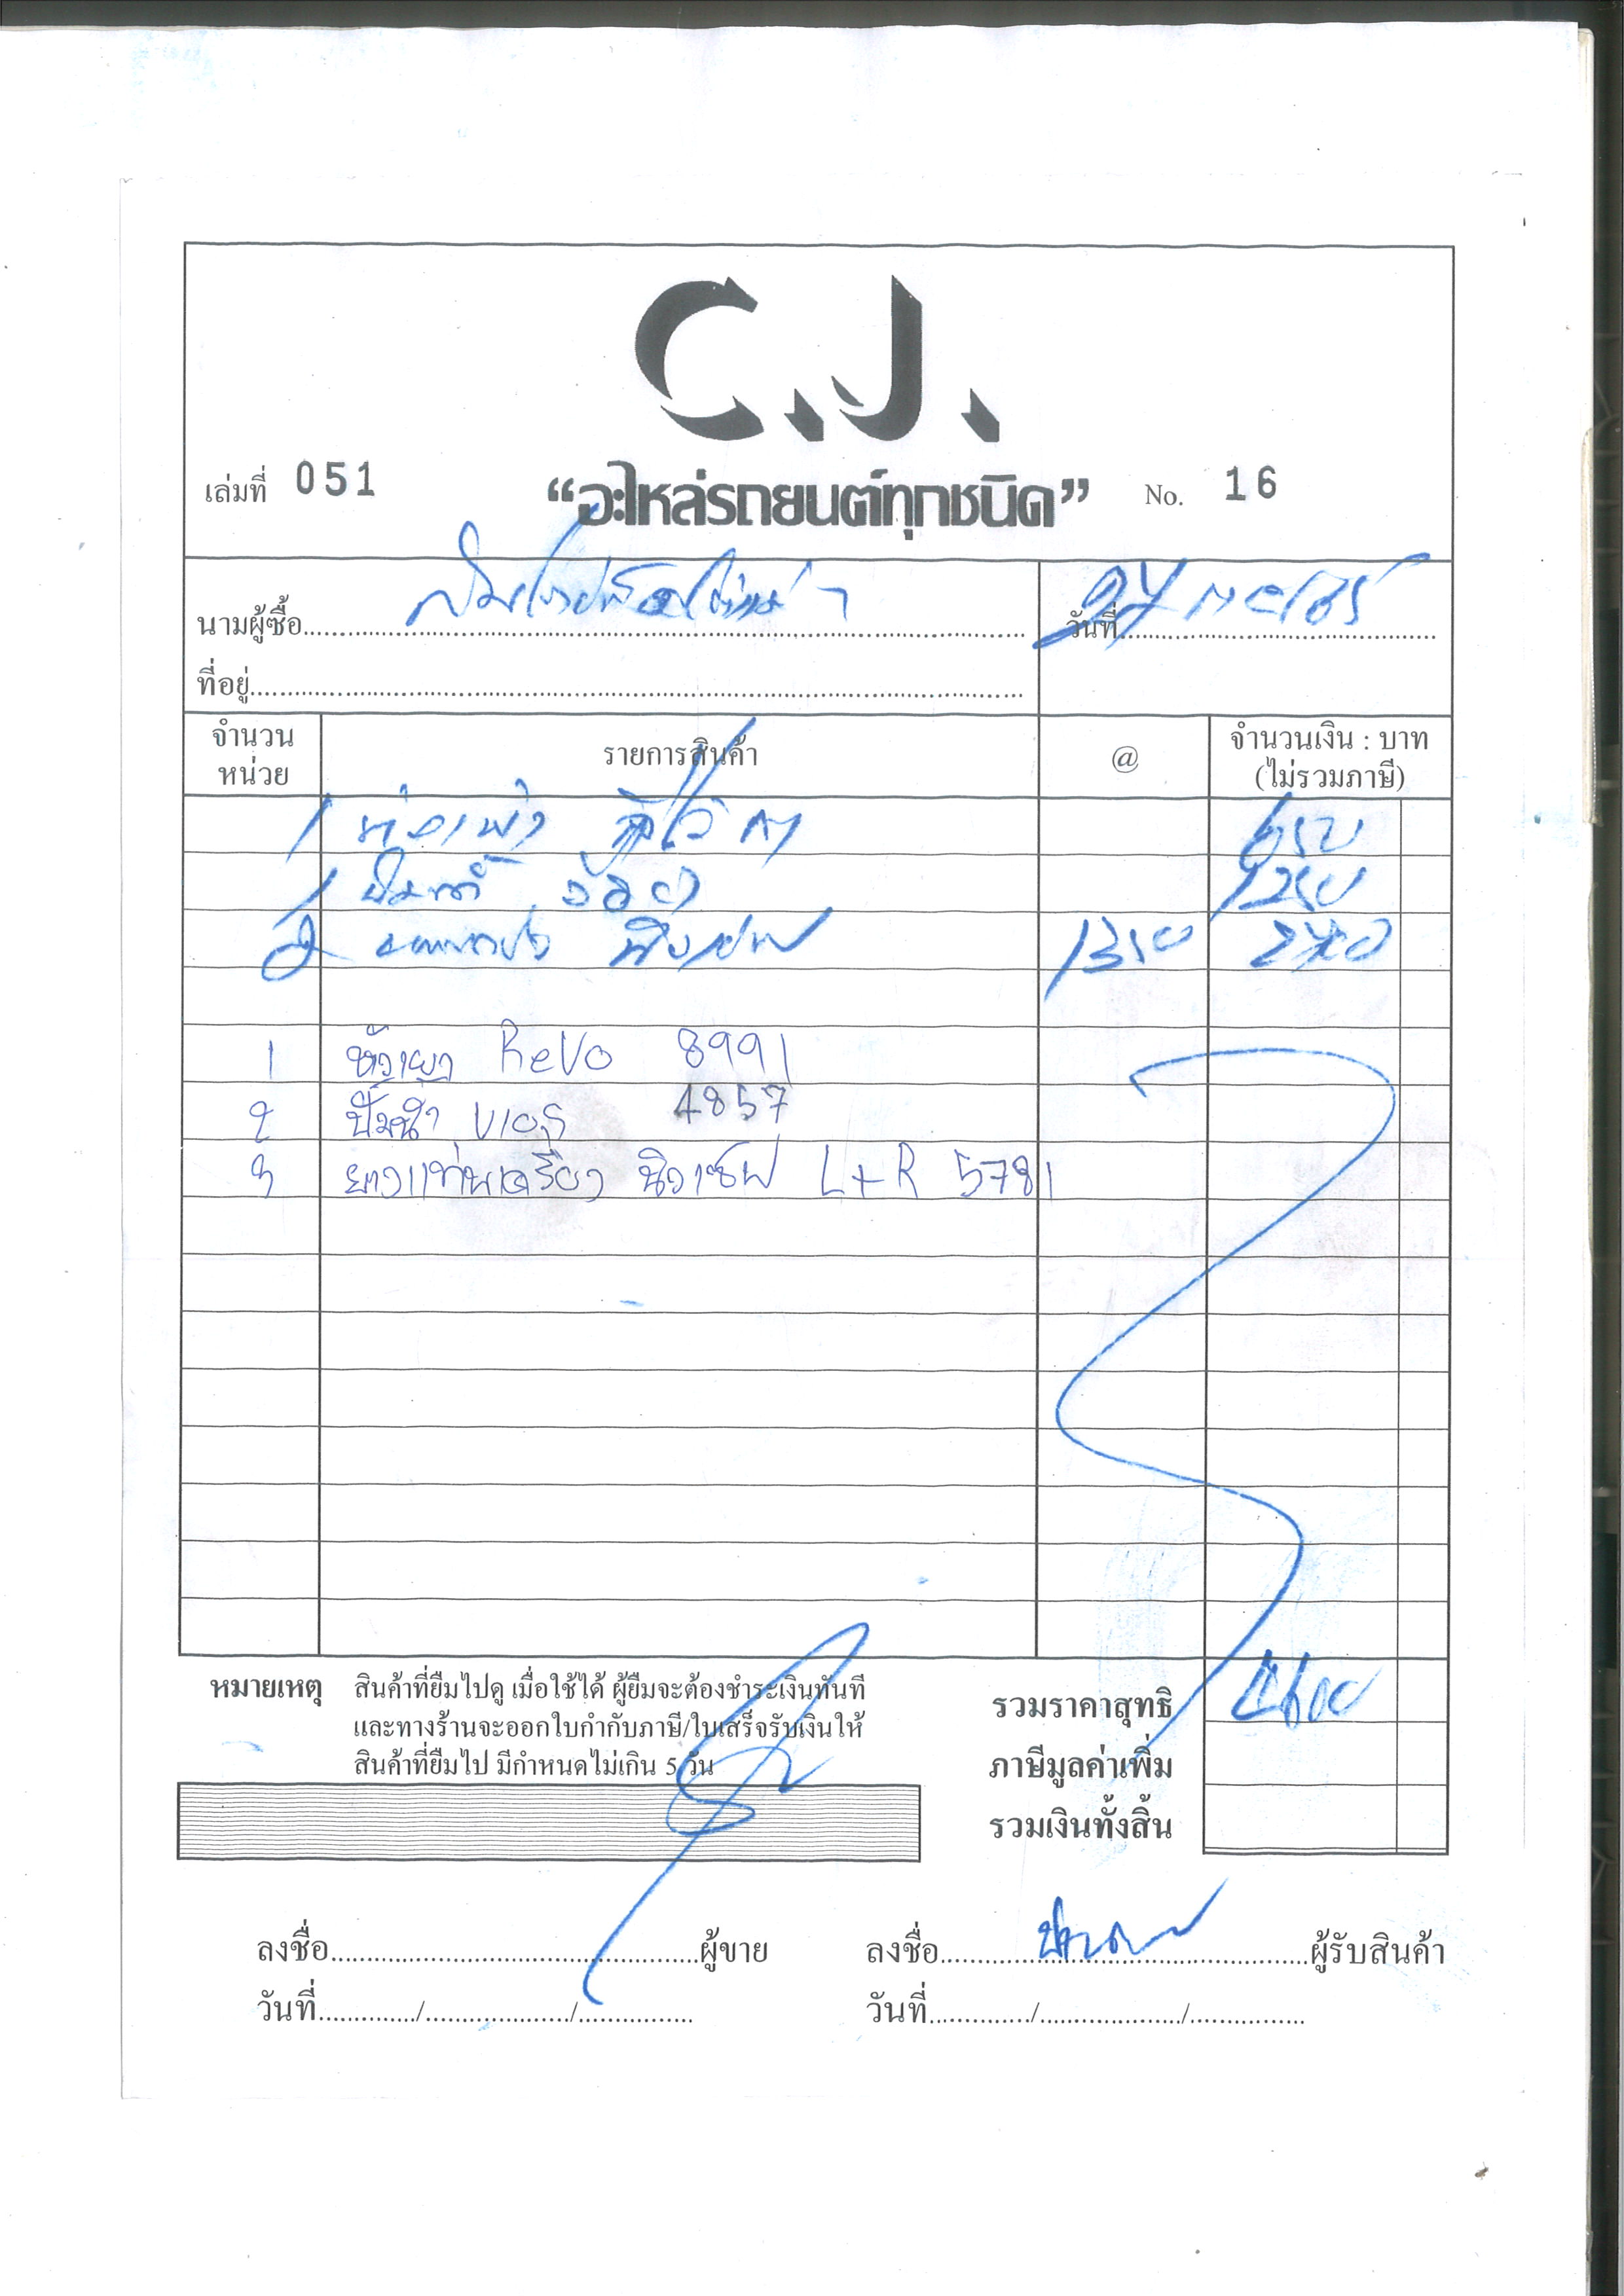 C.J.
เล่มที่ 051 “อะไหล่รถยนต์ทุกชนิด” No. 16
นามผู้ซื้อ วันที่ 27
ที่อยู่
จำนวน หน่วย รายการสินค้า @ จำนวนเงิน : บาท (ไม่รวมภาษี)
1 650
1 ปั๊มน้ำ 1250
2 1350 2700
1 Revo 8991
2 ปั๊มน้ำ VIOS 4857
3 ยางแท่นเครื่อง L+R 5781
หมายเหตุ สินค้าที่ยืมไปดู เมื่อใช้ได้ ผู้ยืมจะต้องชำระเงินทันที
และทางร้านจะออกใบกำกับภาษี/ใบเสร็จรับเงินให้
สินค้าที่ยืมไป มีกำหนดไม่เกิน 5 วัน
รวมราคาสุทธิ 4600
ภาษีมูลค่าเพิ่ม
รวมเงินทั้งสิ้น
ลงชื่อ ผู้ขาย ลงชื่อ ผู้รับสินค้า
วันที่ / / วันที่ / /